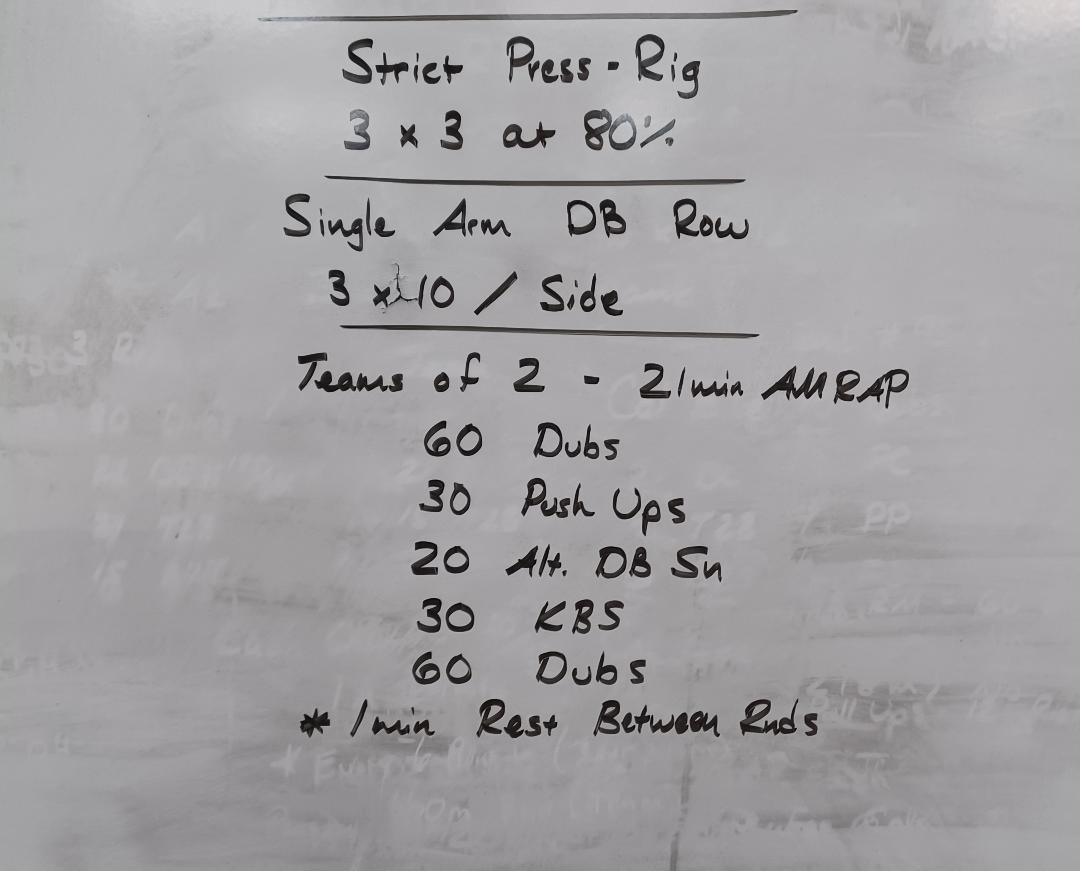 Strict Press - Rig
3 x 3 at 80%
Single Arm DB Row
3 x 10 / Side
Teams of 2 - 21min AMRAP
60 Dubs
30 Push Ups
20 Alt. DB Sn
30 KBS
60 Dubs
* 1min Rest Between Rnds